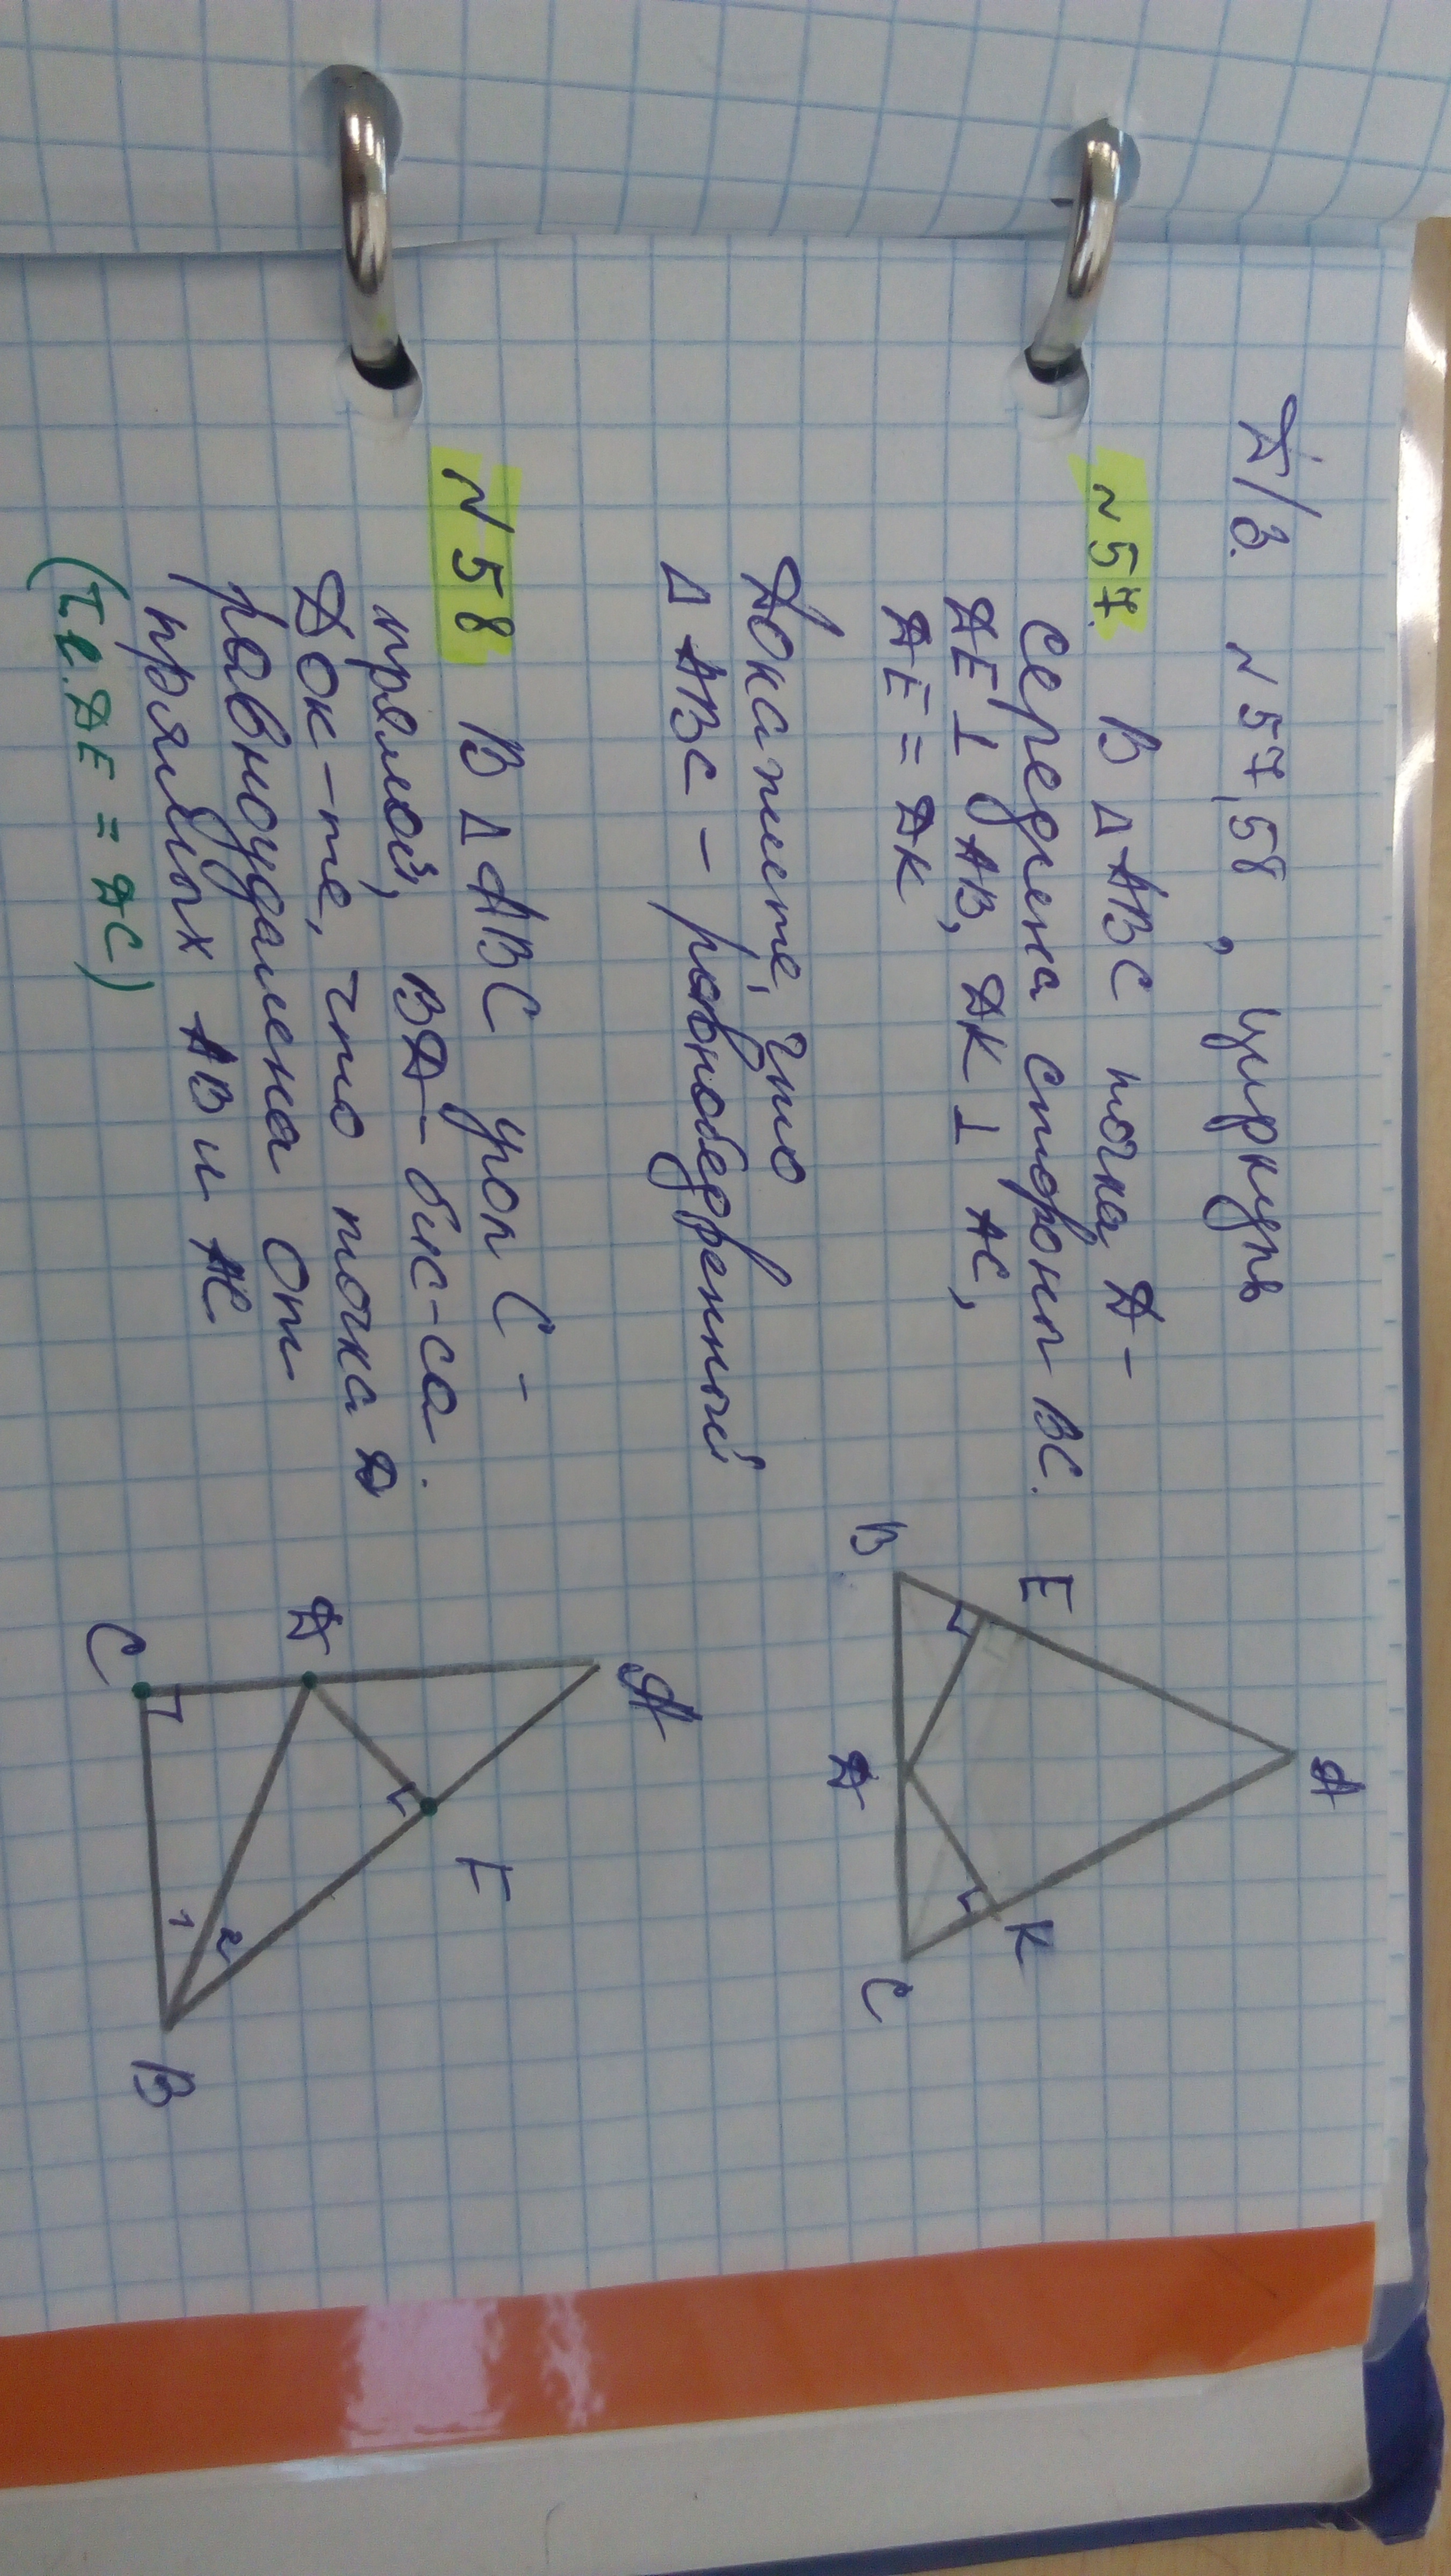 Д/з. №57,58, циркуль
№57. В Δ ABC точка Д -
середина стороны BC.
ДE ⊥ AB, ДK ⊥ AC,
ДE = ДK
Докажите, что
Δ ABC - равнобедренный
B
E
A
K
C
Д
№58 В Δ ABC угол C -
прямой, BД - бис-са.
Док-те, что точка Д
равноудалена от
прямых AB и AC
(т.е. ДE = ДC)
A
Д
C
E
B
1
2